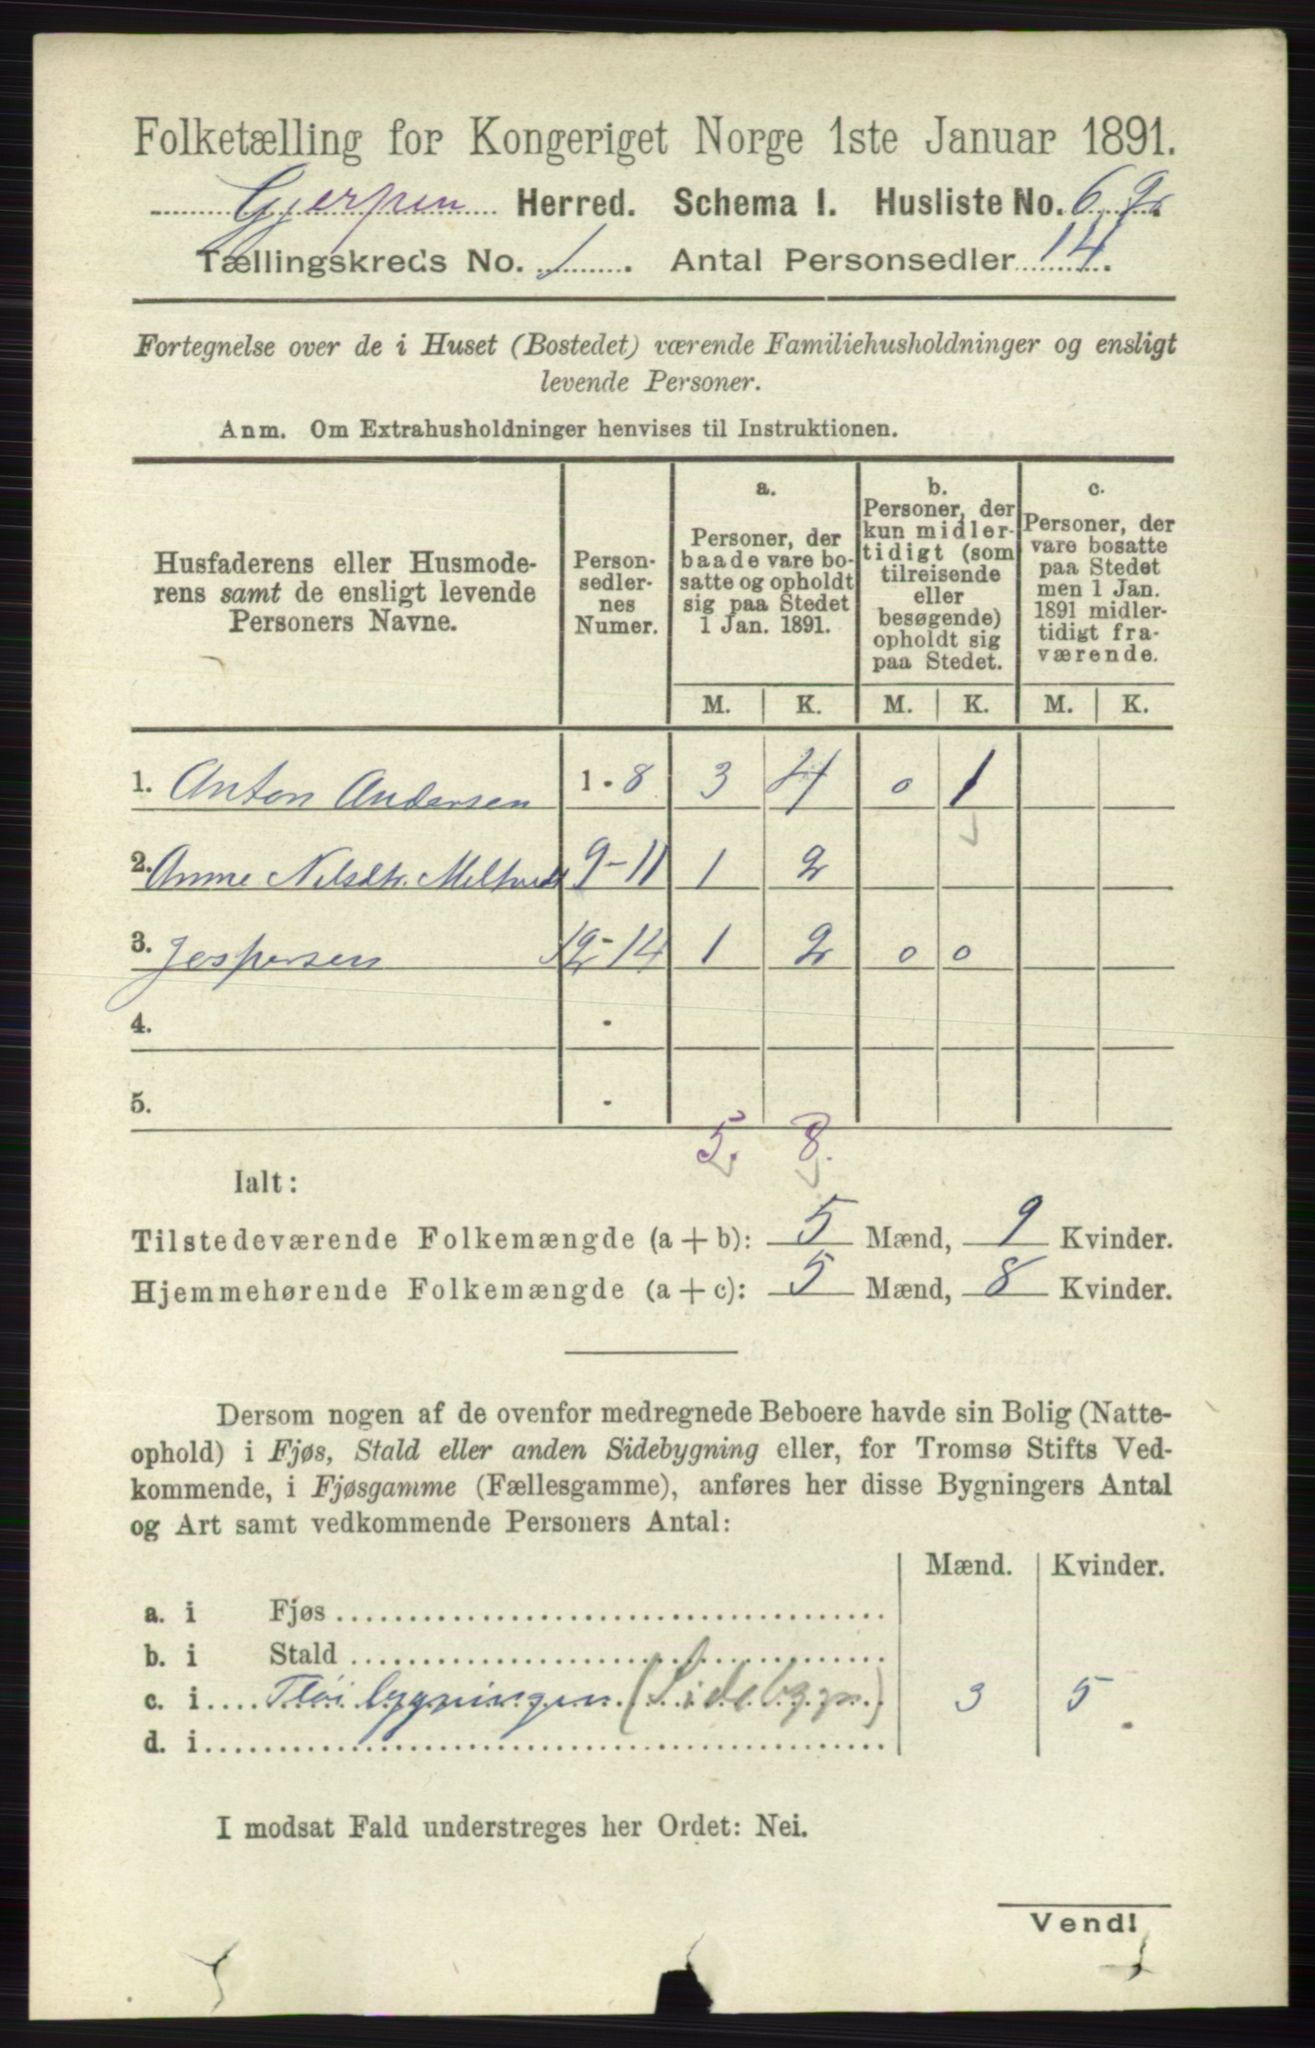 Folketælling for Kongeriget Norge 1ste Januar 1891.
Gjerpen Herred. Schema I. Husliste No. 69.
Tællingskreds No. 1. Antal Personsedler 14.
Fortegnelse over de i Huset (Bostedet) værende Familiehusholdninger og ensligt
levende Personer.
Anm. Om Extrahusholdninger henvises til Instruktionen.
Husfaderens eller Husmode-
rens samt de ensligt levende
Personers Navne.
Person-
sedler-
nes
Numer.
a.
Personer, der
baade vare bo-
satte og opholdt
sig paa Stedet
1 Jan. 1891.
b.
Personer, der
kun midler-
tidigt (som
tilreisende
eller
besøgende)
opholdt sig
paa Stedet.
c.
Personer, der
vare bosatte
paa Stedet
men 1 Jan.
1891 midler-
tidigt fra-
værende.
M. K. M. K. M. K.
1. Anton Andersen 1-8 3 4 0 1
2. Anne Nilsdtr. 9-11 1 2
3. Jespersen 12-14 1 2 0 0
4. -
5. -
5. 8.
Ialt:
Tilstedeværende Folkemængde (a + b): 5 Mænd, 9 Kvinder.
Hjemmehørende Folkemængde (a + c): 5 Mænd, 8 Kvinder.
Dersom nogen af de ovenfor medregnede Beboere havde sin Bolig (Natte-
ophold) i Fjøs, Stald eller anden Sidebygning eller, for Tromsø Stifts Ved-
kommende, i Fjøsgamme (Fællesgamme), anføres her disse Bygningers Antal
og Art samt vedkommende Personers Antal:
Mænd. Kvinder.
a. i Fjøs
b. i Stald
c. i Fløibygningen (Sidebygn.) 3 5
d. i
I modsat Fald understreges her Ordet: Nei.
Vend!